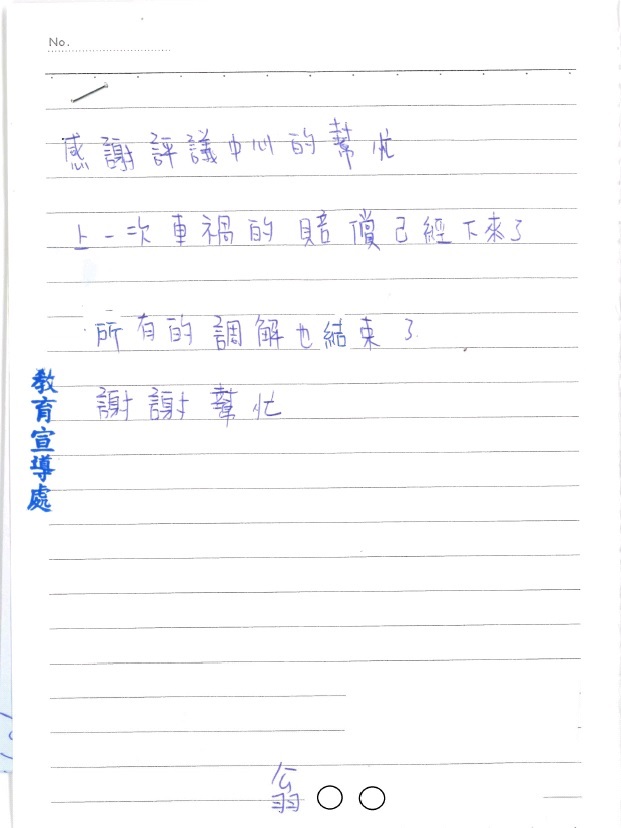 No.
感謝評議中心的幫忙
上一次車禍的賠償已經下來了
所有的調解也結束了
謝謝幫忙
教育宣導處
翁○○